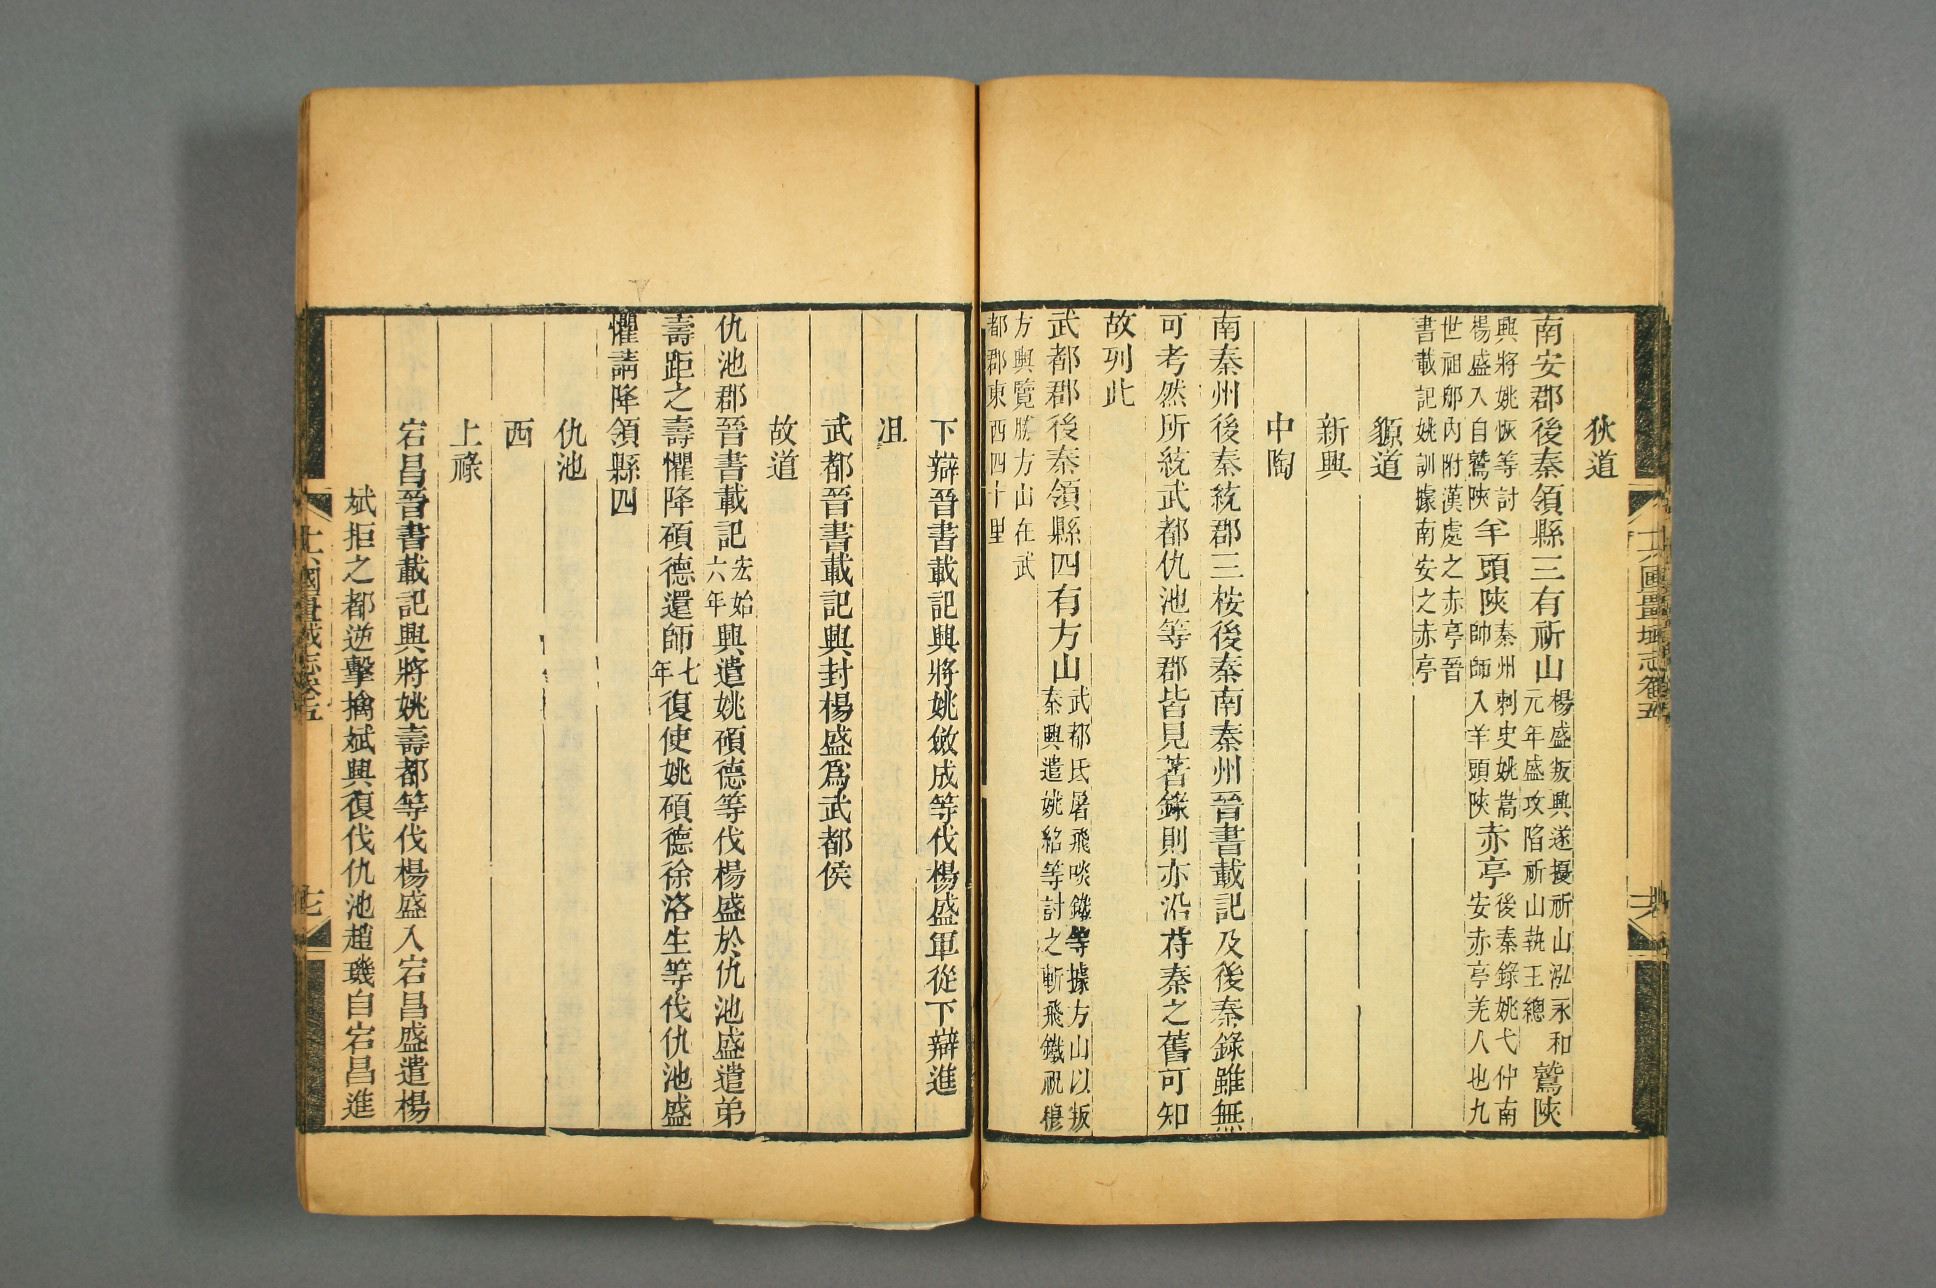 狄道
南安郡後秦領縣三有祈山楊盛叛興遂擾祈山泓永和元年盛攻陷祈山執王總鷲陜
興將姚恢等討楊盛入自鷲陜羊頭陜秦州刺史姚嵩帥師入羊頭陜赤亭後秦錄姚弋仲南安赤亭羌人也九
世祖那內附漢處之赤亭晉書載記姚訓據南安之赤亭
獂道
新興
中陶
南秦州後秦統郡三桉後秦南秦州晉書載記及後秦錄雖無
可考然所統武都仇池等郡皆見著錄則亦沿苻秦之舊可知
故列此
武都郡後秦領縣四有方山武都氐屠飛啖鐵等據方山以叛秦興遣姚紹等討之斬飛鐵祝穆
方輿覽勝方山在武都郡東西四十里
下辯晉書載記興將姚斂成等伐楊盛軍從下辯進
沮
武都晉書載記興封楊盛爲武都侯
故道
仇池郡晉書載記宏始六年興遣姚碩德等伐楊盛於仇池盛遣弟
壽距之壽懼降碩德還師七年復使姚碩德徐洛生等伐仇池盛
懼請降領縣四
仇池
西
上祿
宕昌晉書載記興將姚壽都等伐楊盛入宕昌盛遣楊
斌拒之都逆擊擒斌興復伐仇池趙琨自宕昌進
十六國疆域志卷五